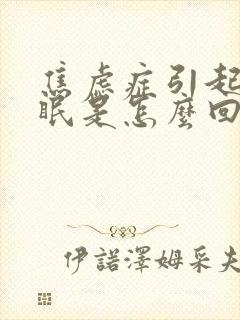 焦虑症引起
眠是怎麼回
伊諾澤姆采夫